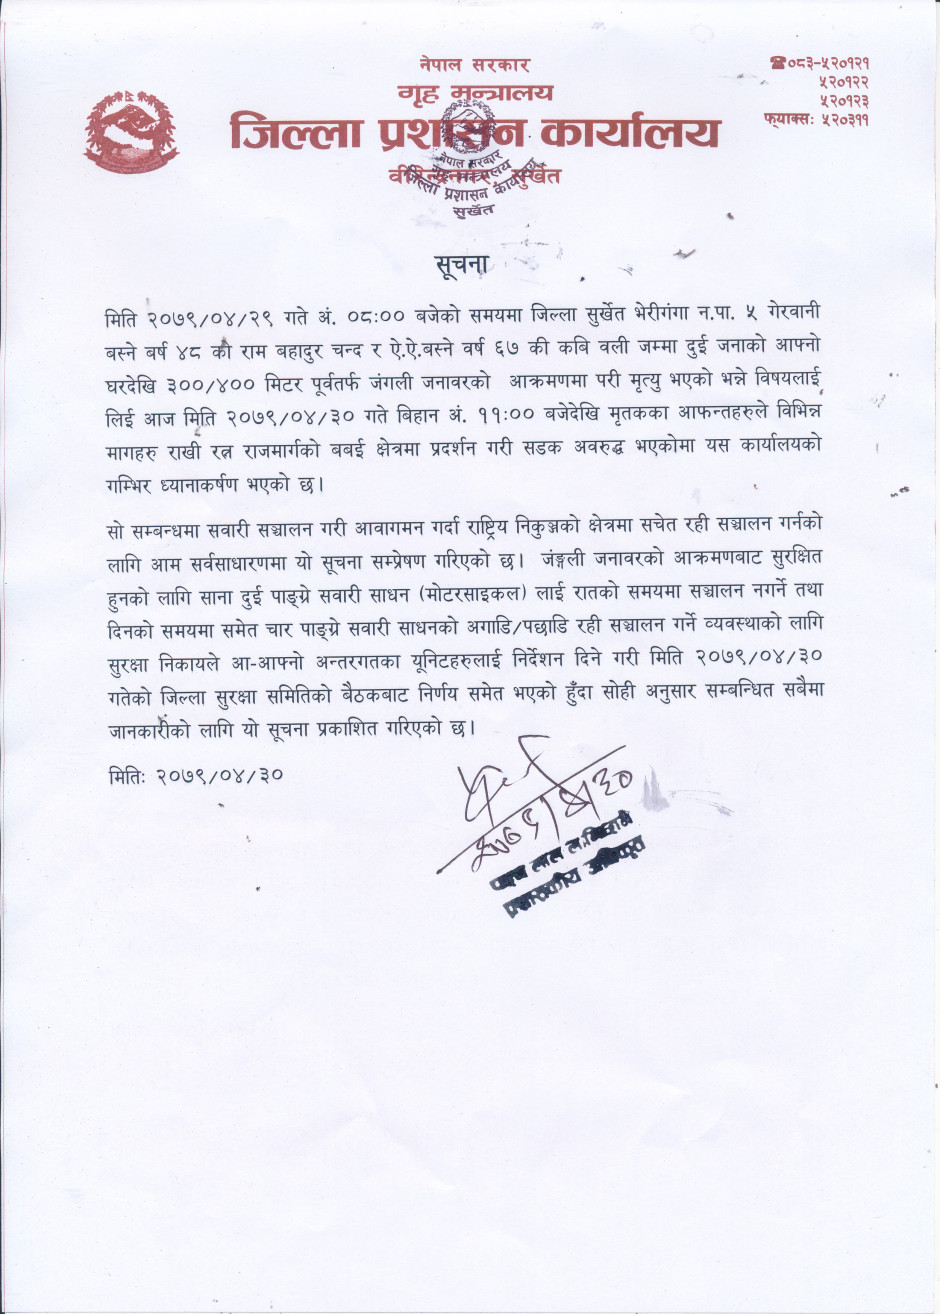 नेपाल सरकार
गृह मन्त्रालय
जिल्ला प्रशासन कार्यालय
वीरेन्द्रनगर, सुर्खेत
☎०८३-५२०१२१
५२०१२२
५२०१२३
फ्याक्सः ५२०३११
नेपाल सरकार
गृह मन्त्रालय
जिल्ला प्रशासन कार्यालय
सुर्खेत
सूचना
मिति २०७९/०४/२९ गते अं. ०८:०० बजेको समयमा जिल्ला सुर्खेत भेरीगंगा न.पा. ५ गेरवानी
बस्ने बर्ष ४८ को राम बहादुर चन्द र ऐ.ऐ.बस्ने वर्ष ६७ की कबि वली जम्मा दुई जनाको आफ्नो
घरदेखि ३००/४०० मिटर पूर्वतर्फ जंगली जनावरको आक्रमणमा परी मृत्यु भएको भन्ने विषयलाई
लिई आज मिति २०७९/०४/३० गते बिहान अं. ११:०० बजेदेखि मृतकका आफन्तहरुले विभिन्न
मागहरु राखी रत्न राजमार्गको बबई क्षेत्रमा प्रदर्शन गरी सडक अवरुद्ध भएकोमा यस कार्यालयको
गम्भिर ध्यानाकर्षण भएको छ।
सो सम्बन्धमा सवारी सञ्चालन गरी आवागमन गर्दा राष्ट्रिय निकुञ्जको क्षेत्रमा सचेत रही सञ्चालन गर्नको
लागि आम सर्वसाधारणमा यो सूचना सम्प्रेषण गरिएको छ। जंङ्गली जनावरको आक्रमणबाट सुरक्षित
हुनको लागि साना दुई पाङ्ग्रे सवारी साधन (मोटरसाइकल) लाई रातको समयमा सञ्चालन नगर्ने तथा
दिनको समयमा समेत चार पाङ्ग्रे सवारी साधनको अगाडि/पछाडि रही सञ्चालन गर्ने व्यवस्थाको लागि
सुरक्षा निकायले आ-आफ्नो अन्तरगतका यूनिटहरुलाई निर्देशन दिने गरी मिति २०७९/०४/३०
गतेको जिल्ला सुरक्षा समितिको बैठकबाट निर्णय समेत भएको हुँदा सोही अनुसार सम्बन्धित सबैमा
जानकारीको लागि यो सूचना प्रकाशित गरिएको छ।
मितिः २०७९/०४/३०
२०७९/४/३०
लाल
प्रशासकीय अधिकृत